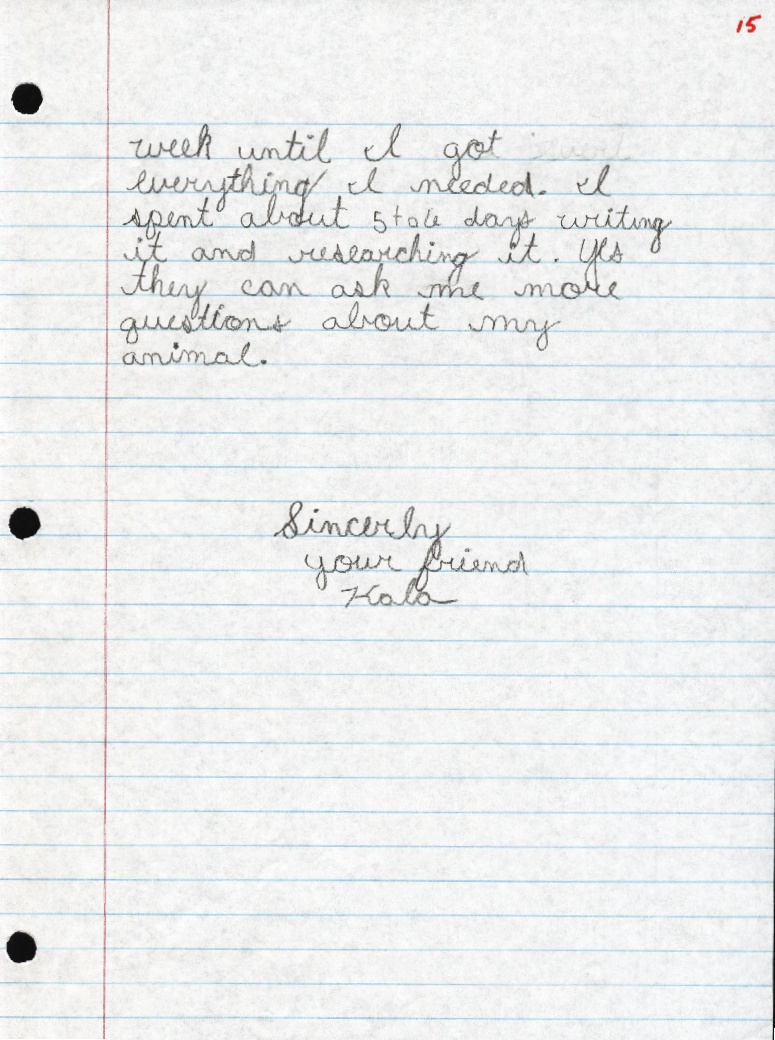 15
week until I got
everything I needed. I
spent about 5 to 6 days writing
it and researching it. Yes
they can ask me more
questions about my
animal.
Sincerly
your friend
Kala